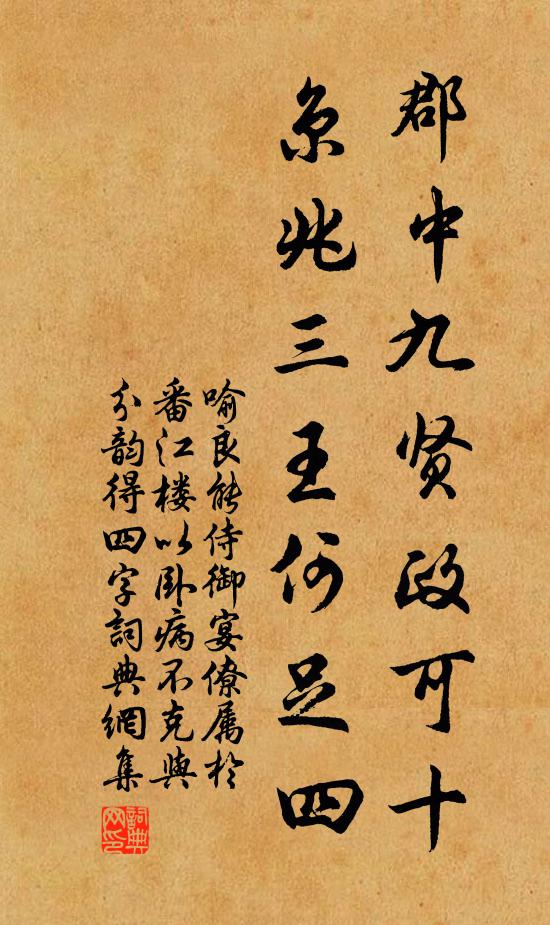 郡中九贤政可十
京兆三王何足四
喻良能侍御宴僚属於
番江楼以卧病不克与
分韵得四字詞典網集
詞典网印